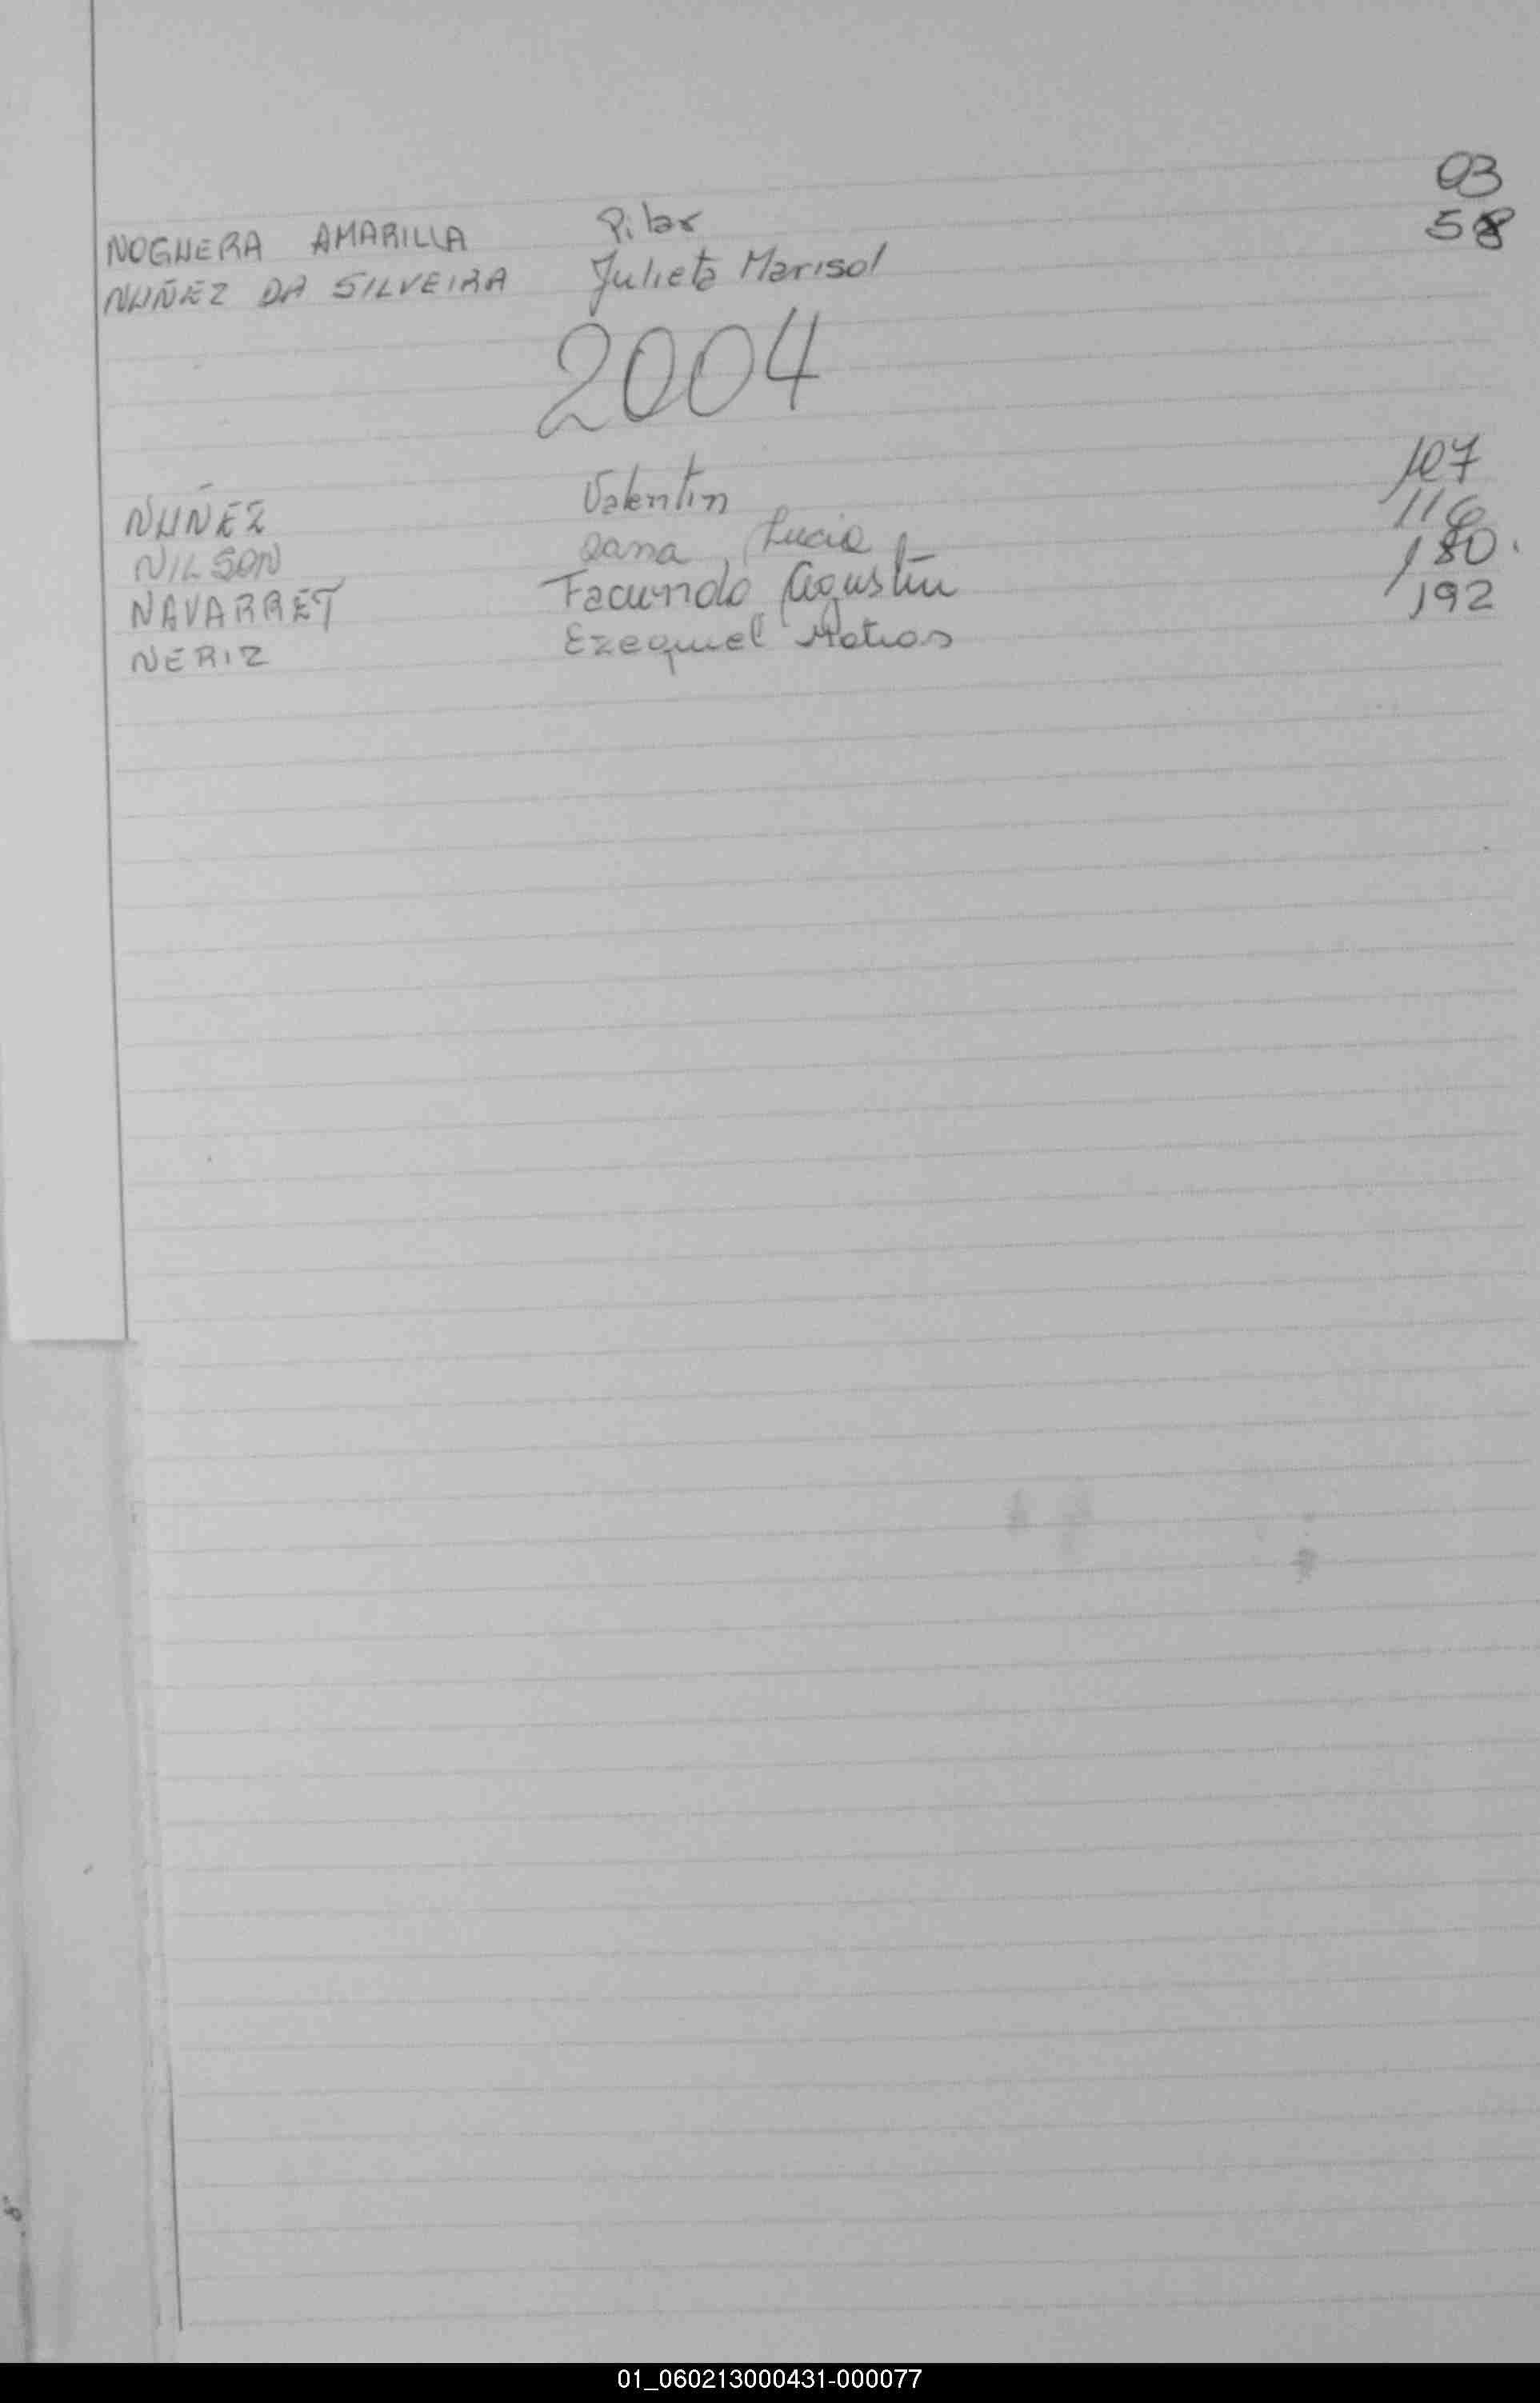 NOGUERA AMARILLA Pilar 03
NUÑEZ DA SILVEIRA Julieta Marisol 58
2004
NUÑEZ Valentin 107
NILSON Oana Lucia 116
NAVARRET Facundo Agustin 180.
NERIZ Ezequiel Matias 192
01_060213000431-000077